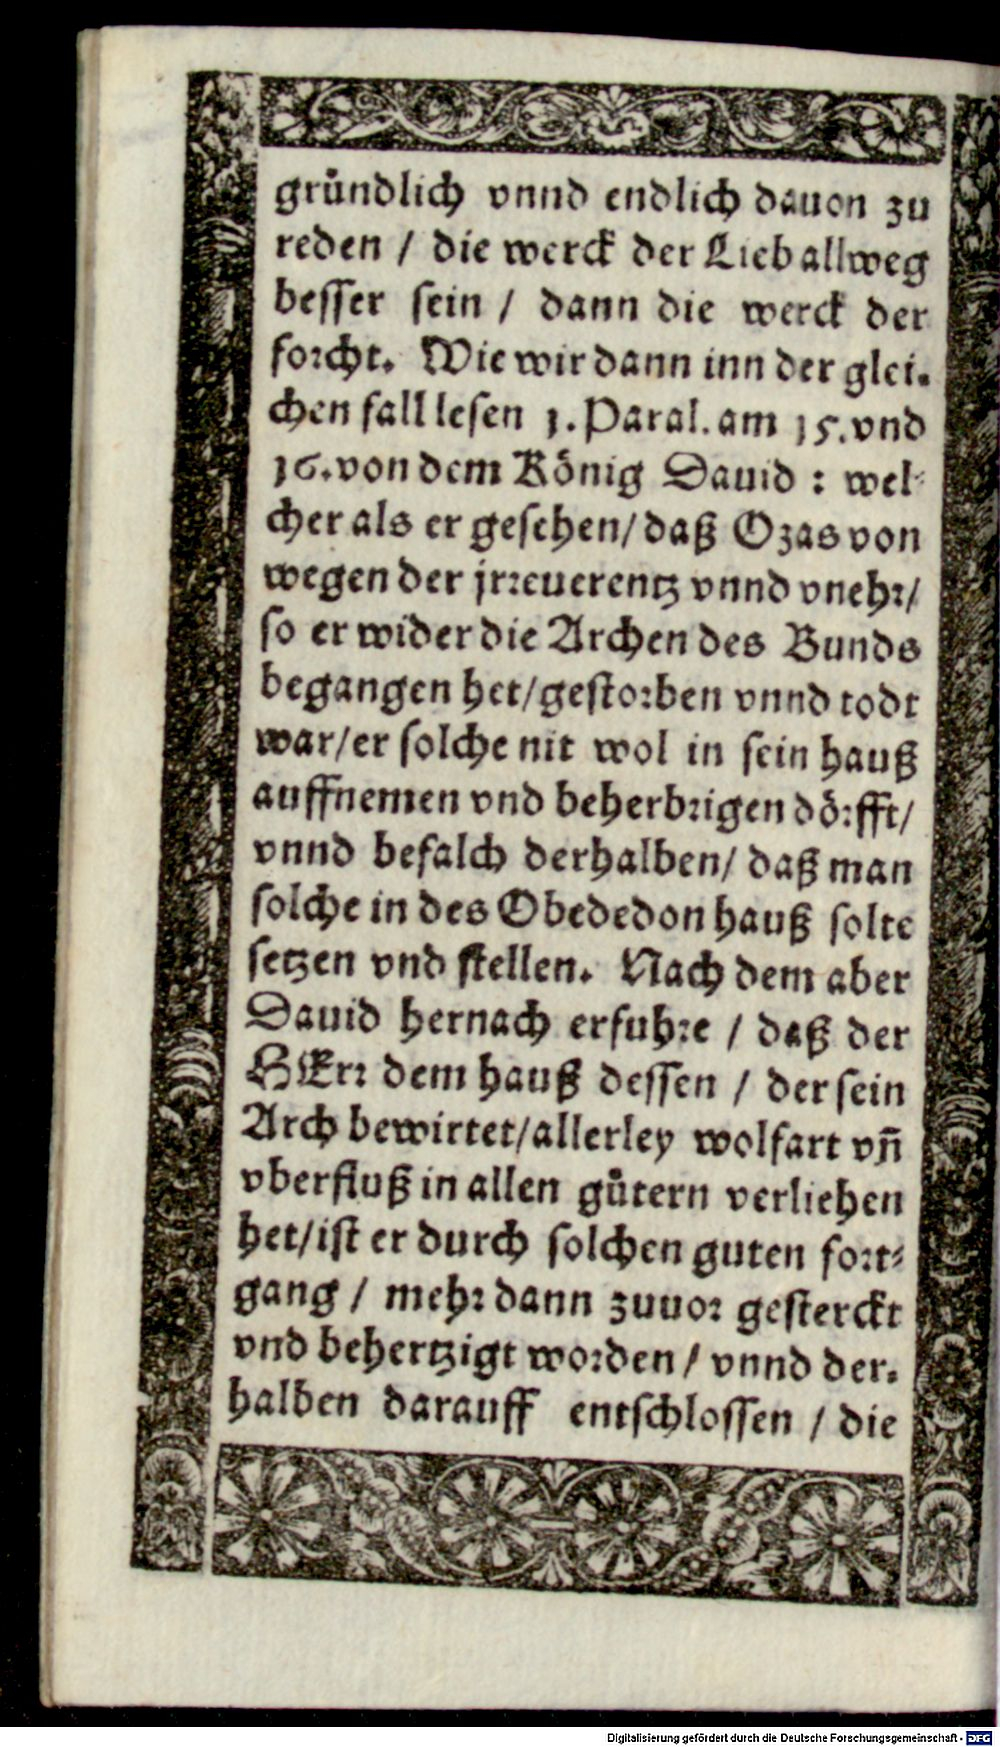 gründlich vnnd endlich dauon zu
reden / die werck der Lieb allweg
besser sein / dann die werck der
forcht. Wie wir dann inn der glei-
chen fall lesen 1. Paral. am 15. vnd
16. von dem König Dauid : wel-
cher als er gesehen / daß Ozas von
wegen der jrreuerentz vnnd vnehr /
so er wider die Archen des Bunds
begangen het / gestorben vnnd todt
war / er solche nit wol in sein hauß
auffnemen vnd beherbrigen dörfft /
vnnd befalch derhalben / daß man
solche in des Obededon hauß solte
setzen vnd stellen. Nach dem aber
Dauid hernach erfuhre / daß der
HErr dem hauß dessen / der sein
Arch bewirtet / allerley wolfart vñ
vberfluß in allen gůtern verliehen
het / ist er durch solchen guten fort-
gang / mehr dann zuuor gesterckt
vnd behertzigt worden / vnnd der-
halben darauff entschlossen / die
Digitalisierung gefördert durch die Deutsche Forschungsgemeinschaft - DFG